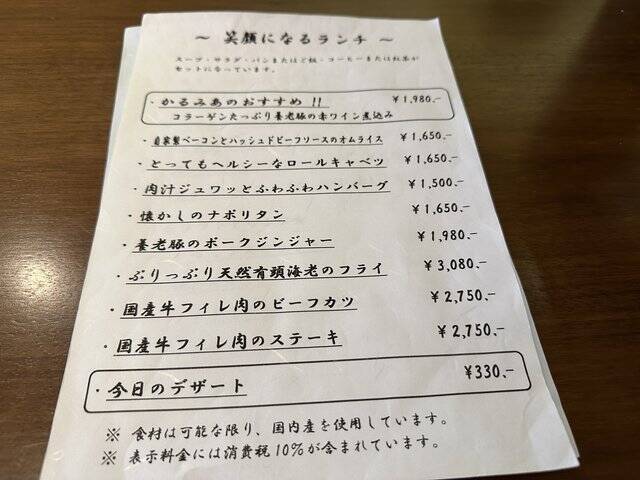 ～ 笑顔になるランチ ～
スープ・サラダ・パンまたはご飯・コーヒーまたは紅茶が
セットになっています。
・かるみあのおすすめ !! ¥1,980.-
コラーゲンたっぷり養老豚の赤ワイン煮込み
・自家製ベーコンとハッシュドビーフソースのオムライス ¥1,650.-
・とってもヘルシーなロールキャベツ ¥1,650.-
・肉汁ジュワッとふわふわハンバーグ ¥1,500.-
・懐かしのナポリタン ¥1,650.-
・養老豚のポークジンジャー ¥1,980.-
・ぷりっぷり天然有頭海老のフライ ¥3,080.-
・国産牛フィレ肉のビーフカツ ¥2,750.-
・国産牛フィレ肉のステーキ ¥2,750.-
・今日のデザート ¥330.-
※ 食材は可能な限り、国内産を使用しています。
※ 表示料金には消費税10%が含まれています。